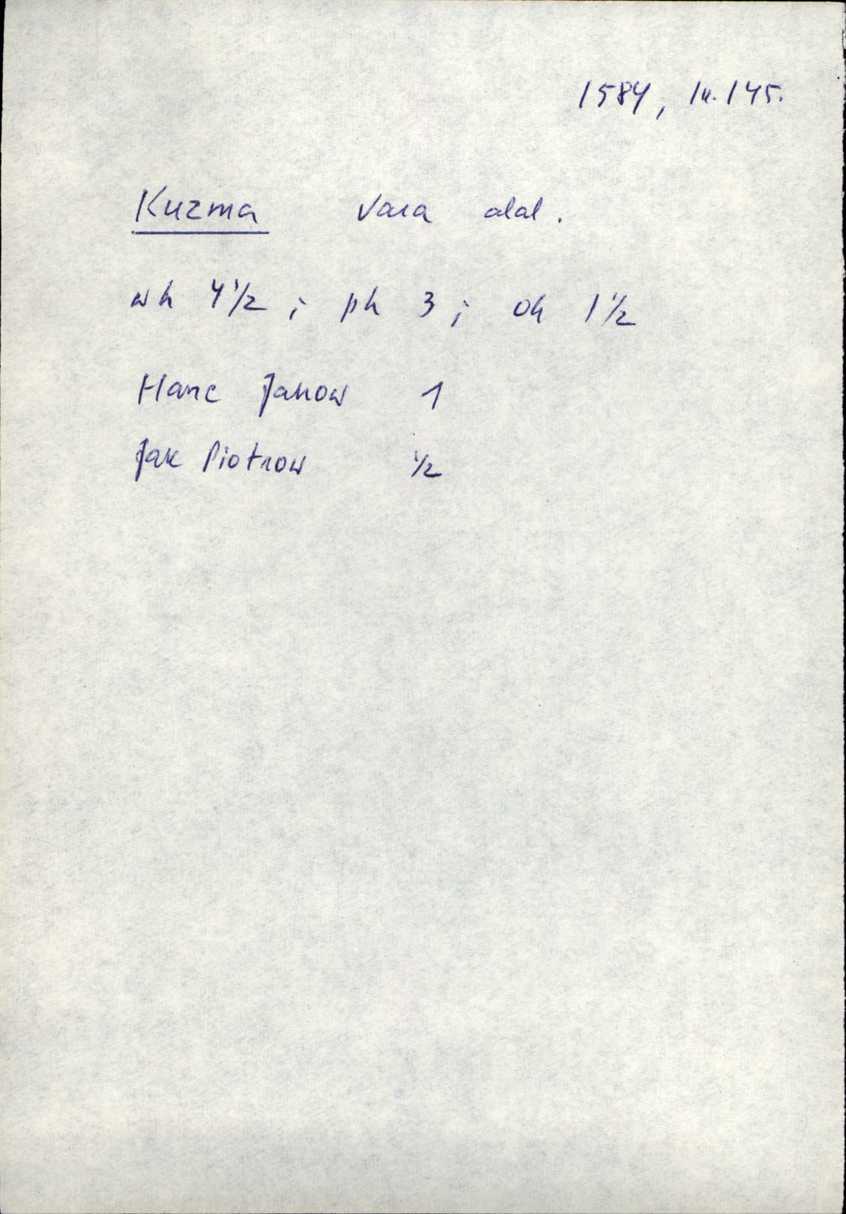 1584, lk. 145.
Kuzma vara alal.
wh 4 1/2 ; ph 3 ; oh 1 1/2
Hanc Janow 1
Jak Piotrow 1/2